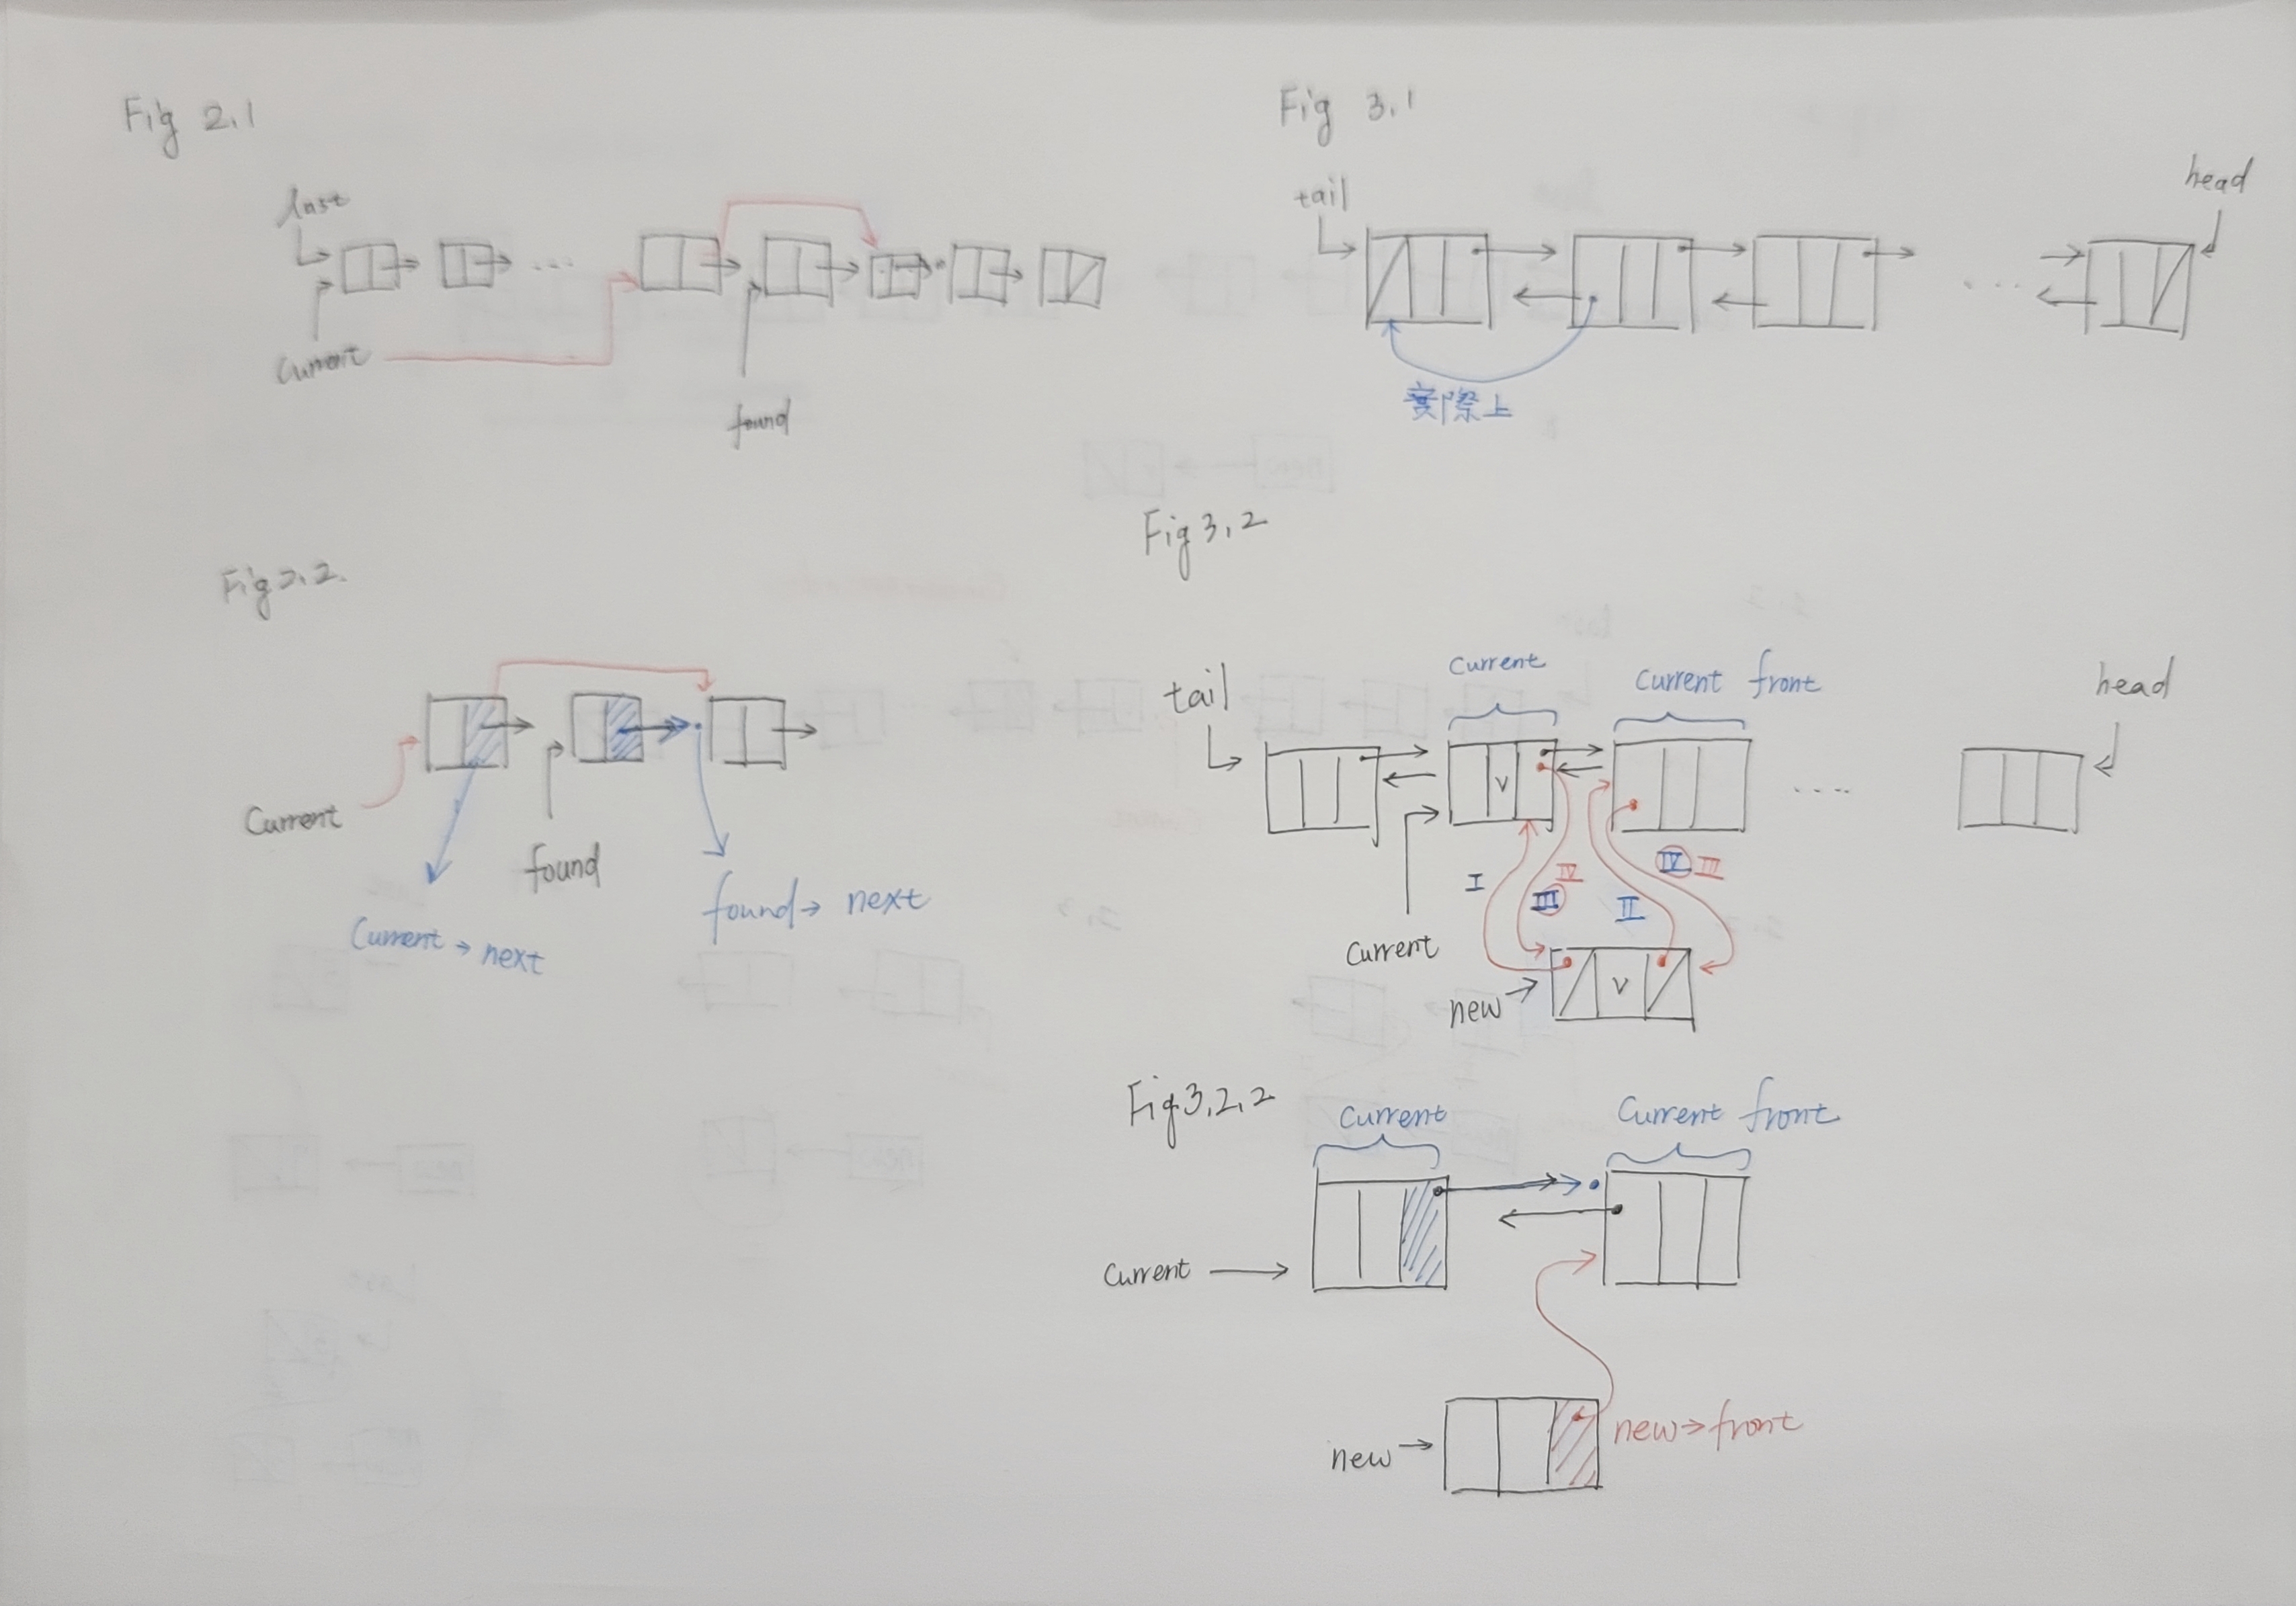 Fig 2.1
last
Current
found
Fig 3.1
tail
head
實際上
Fig 2.2.
Current
found
Current → next
found → next
Fig 3.2
tail
Current
Current front
head
V
I
III
IV
II
IV III
Current
new →
V
Fig 3.2.2
Current
Current front
Current
new →
new → front